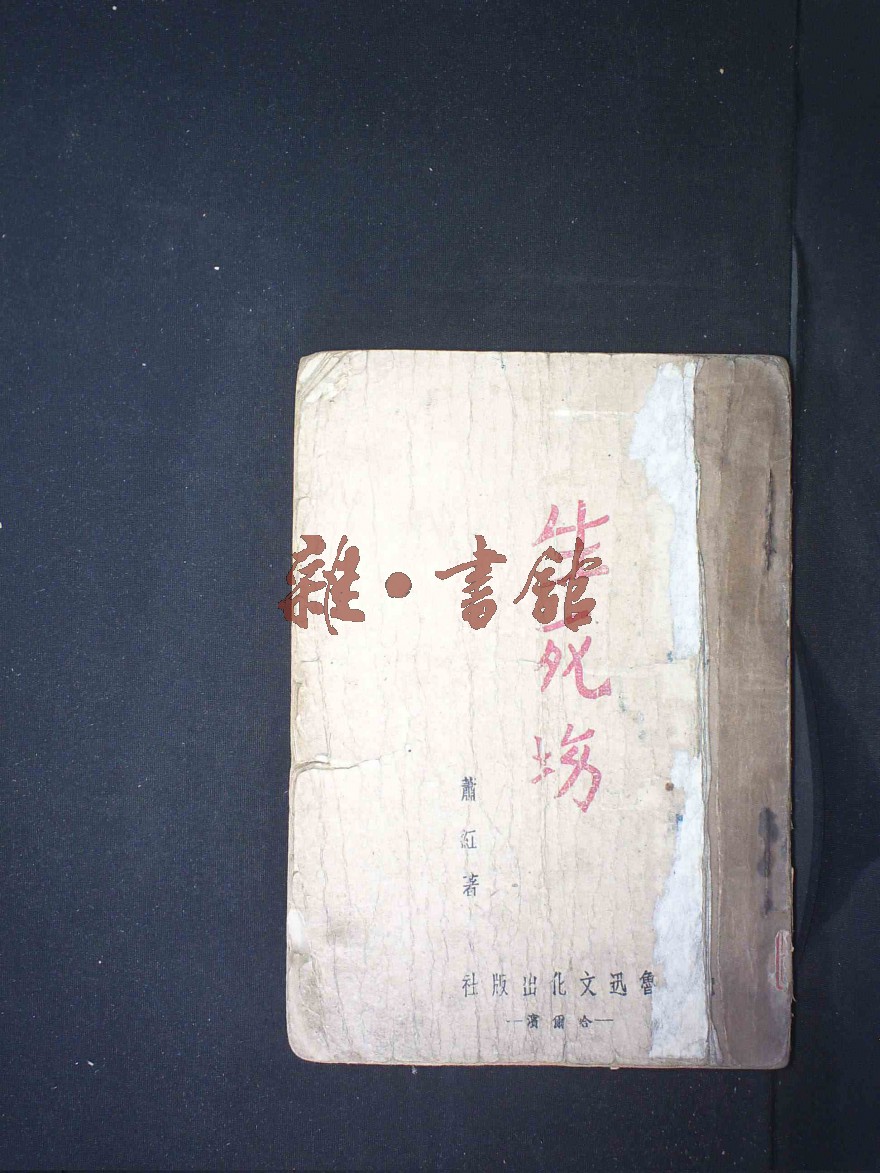 生死場
蕭紅著
魯迅文化出版社
—哈爾濱—
雜·書館